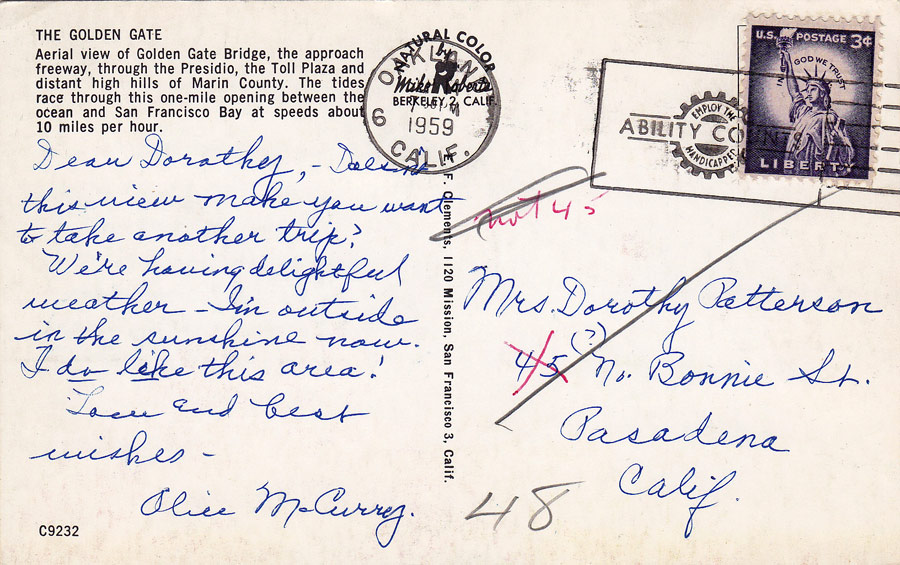 THE GOLDEN GATE
Aerial view of Golden Gate Bridge, the approach
freeway, through the Presidio, the Toll Plaza and
distant high hills of Marin County. The tides
race through this one-mile opening between the
ocean and San Francisco Bay at speeds about
10 miles per hour.
Dear Dorothy, – Doesn't
this view make you want
to take another trip?
We're having delightful
weather – I'm outside
in the sunshine now.
I do like this area!
Love and best
wishes –
Alice McCurry.
C9232
NATURAL COLOR
by
Mike Roberts
BERKELEY 2, CALIF.
OAKLAND
1959
6
CALIF.
F. Clements, 1120 Mission, San Francisco 3, Calif.
EMPLOY THE
ABILITY COUNTS
HANDICAPPED
U.S. POSTAGE 3¢
IN GOD WE TRUST
LIBERTY
not 45
Mrs. Dorothy Patterson
(?)
45 No. Bonnie St.
Pasadena
Calif.
48